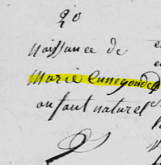 20
naissance de
marie cunegonde
enfant naturel